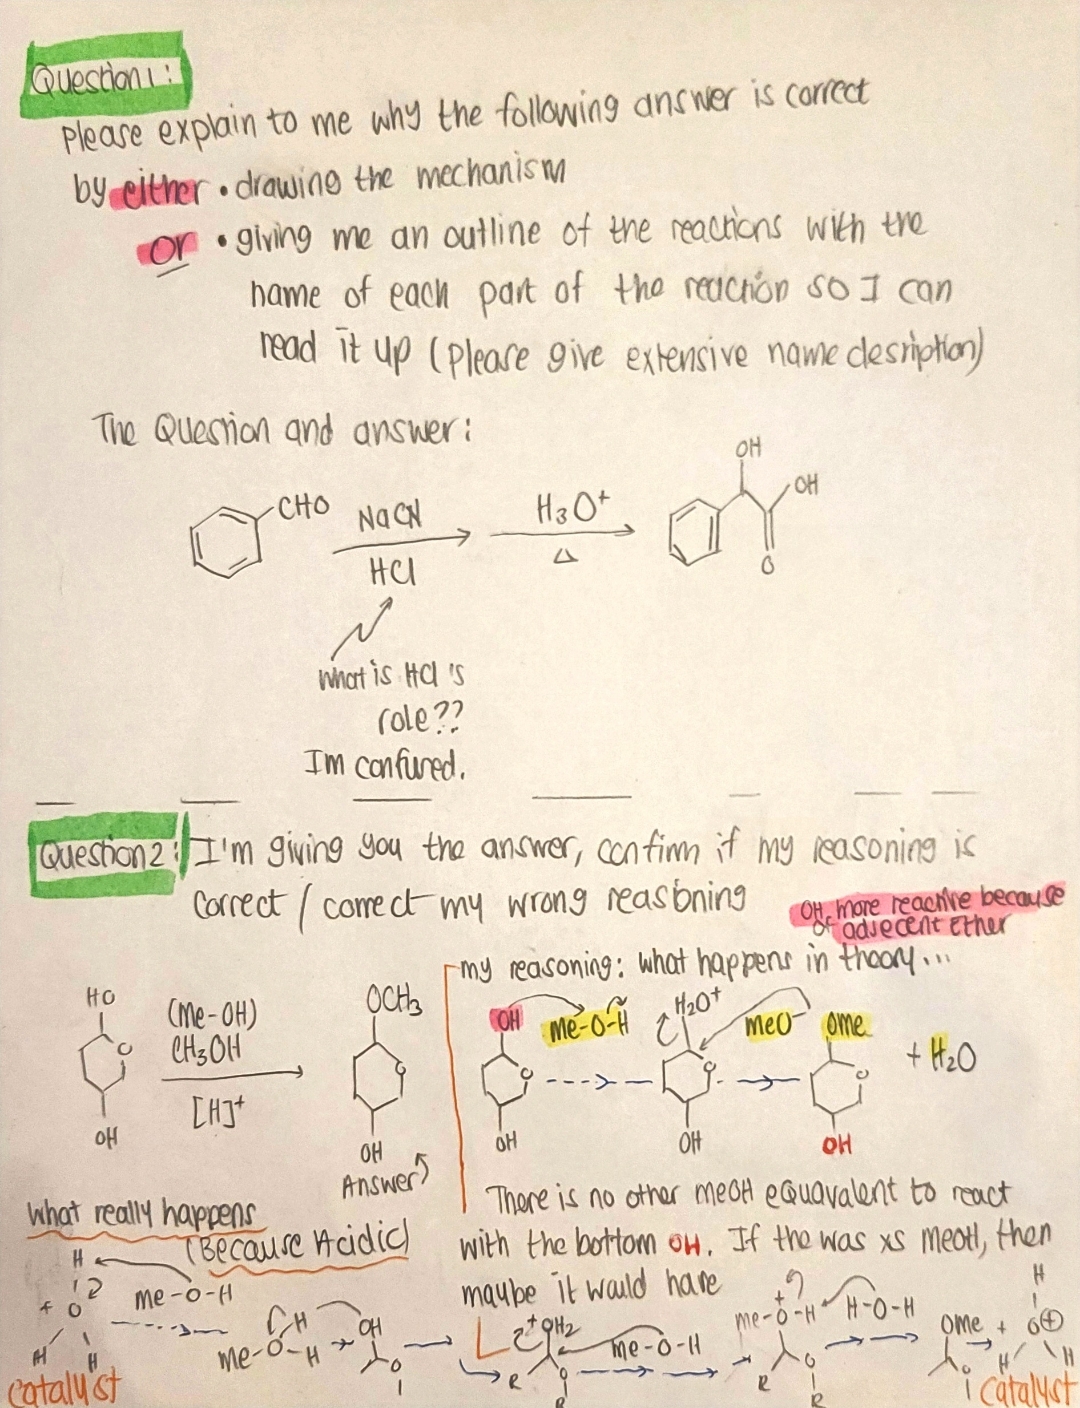 Question 1:
Please explain to me why the following answer is correct
by either • drawing the mechanism
or • giving me an outline of the reactions with the
name of each part of the reaction so I can
read it up (Please give extensive name desription)
The Question and answer:
OH
CHO
NaCN
H3O+
OH
HCl
Δ
O
What is HCl 's
role??
Im confused.
Question 2: I'm giving you the answer, confirm if my reasoning is
correct / correct my wrong reasoning
OH more reactive because
of adjecent Ether
my reasoning: what happens in theory...
HO
(Me-OH)
CH3OH
[H]+
O
OH
OCH3
O
OH
Answer
OH
Me-O-H
H2O+
MeO-
OMe
+ H2O
O
O
O
OH
OH
OH
There is no other MeOH equavalent to react
with the bottom OH. If the was xs MeOH, then
maybe it would have
What really happens
(Because Acidic)
H
+ O
H
H
Me-O-H
Me-O-H
H
OH
O
+OH2
R
O
R
Me-O-H
Me-O-H
+
H-O-H
R
O
R
OMe +
O
H
O⊕
H
H
Catalyst
Catalyst